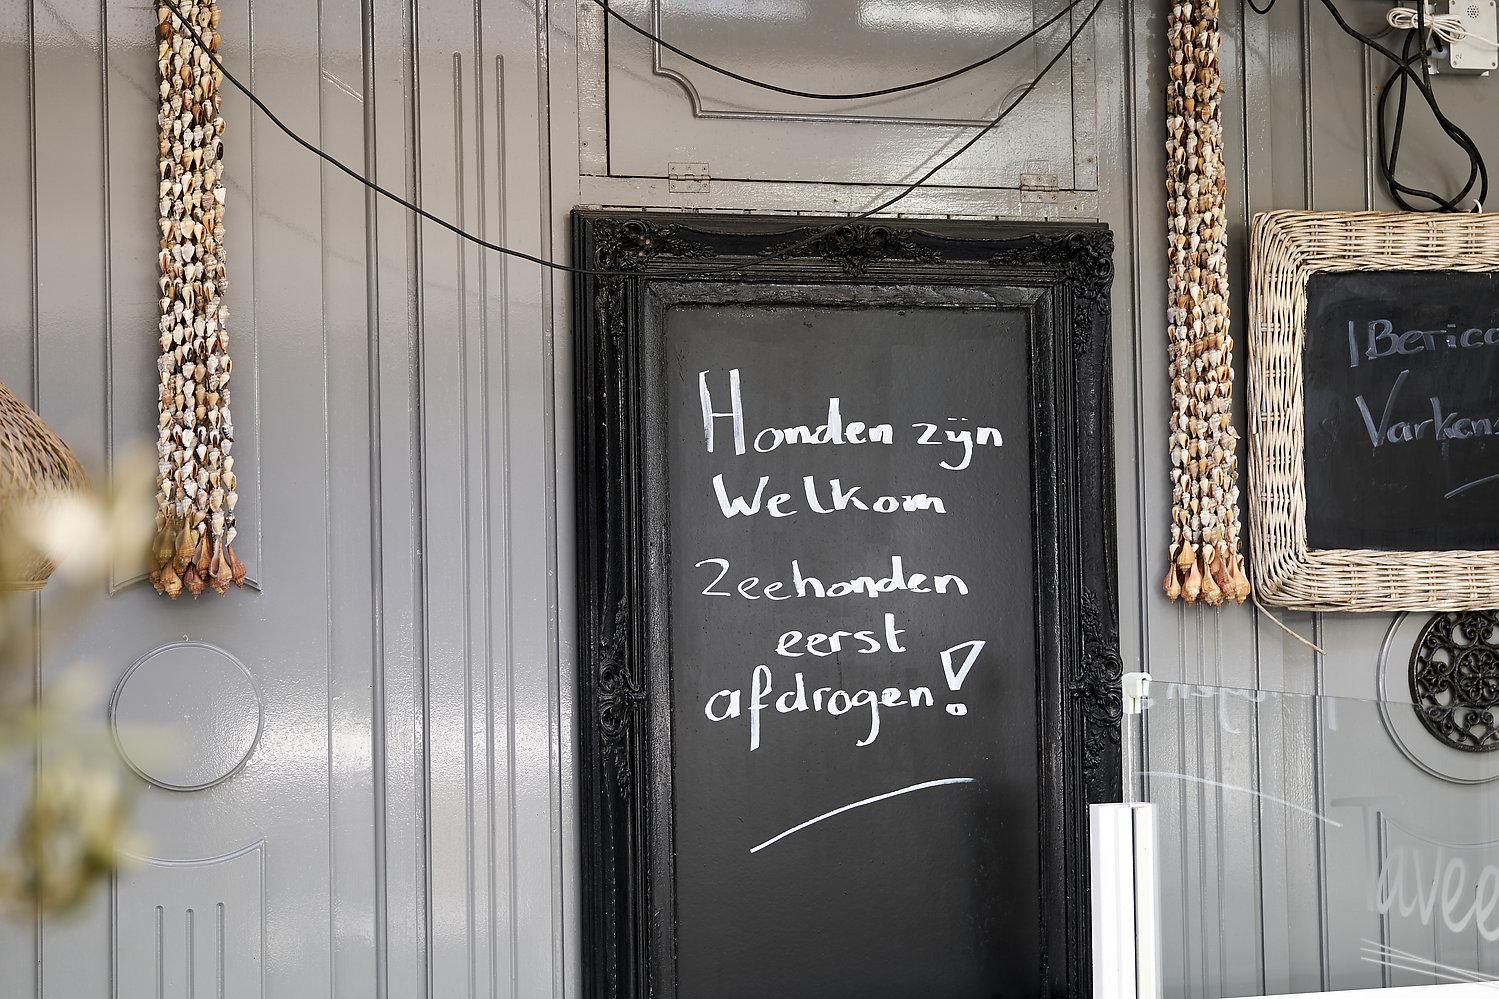 Honden zijn
Welkom
Zeehonden
eerst
afdrogen!
Varkens